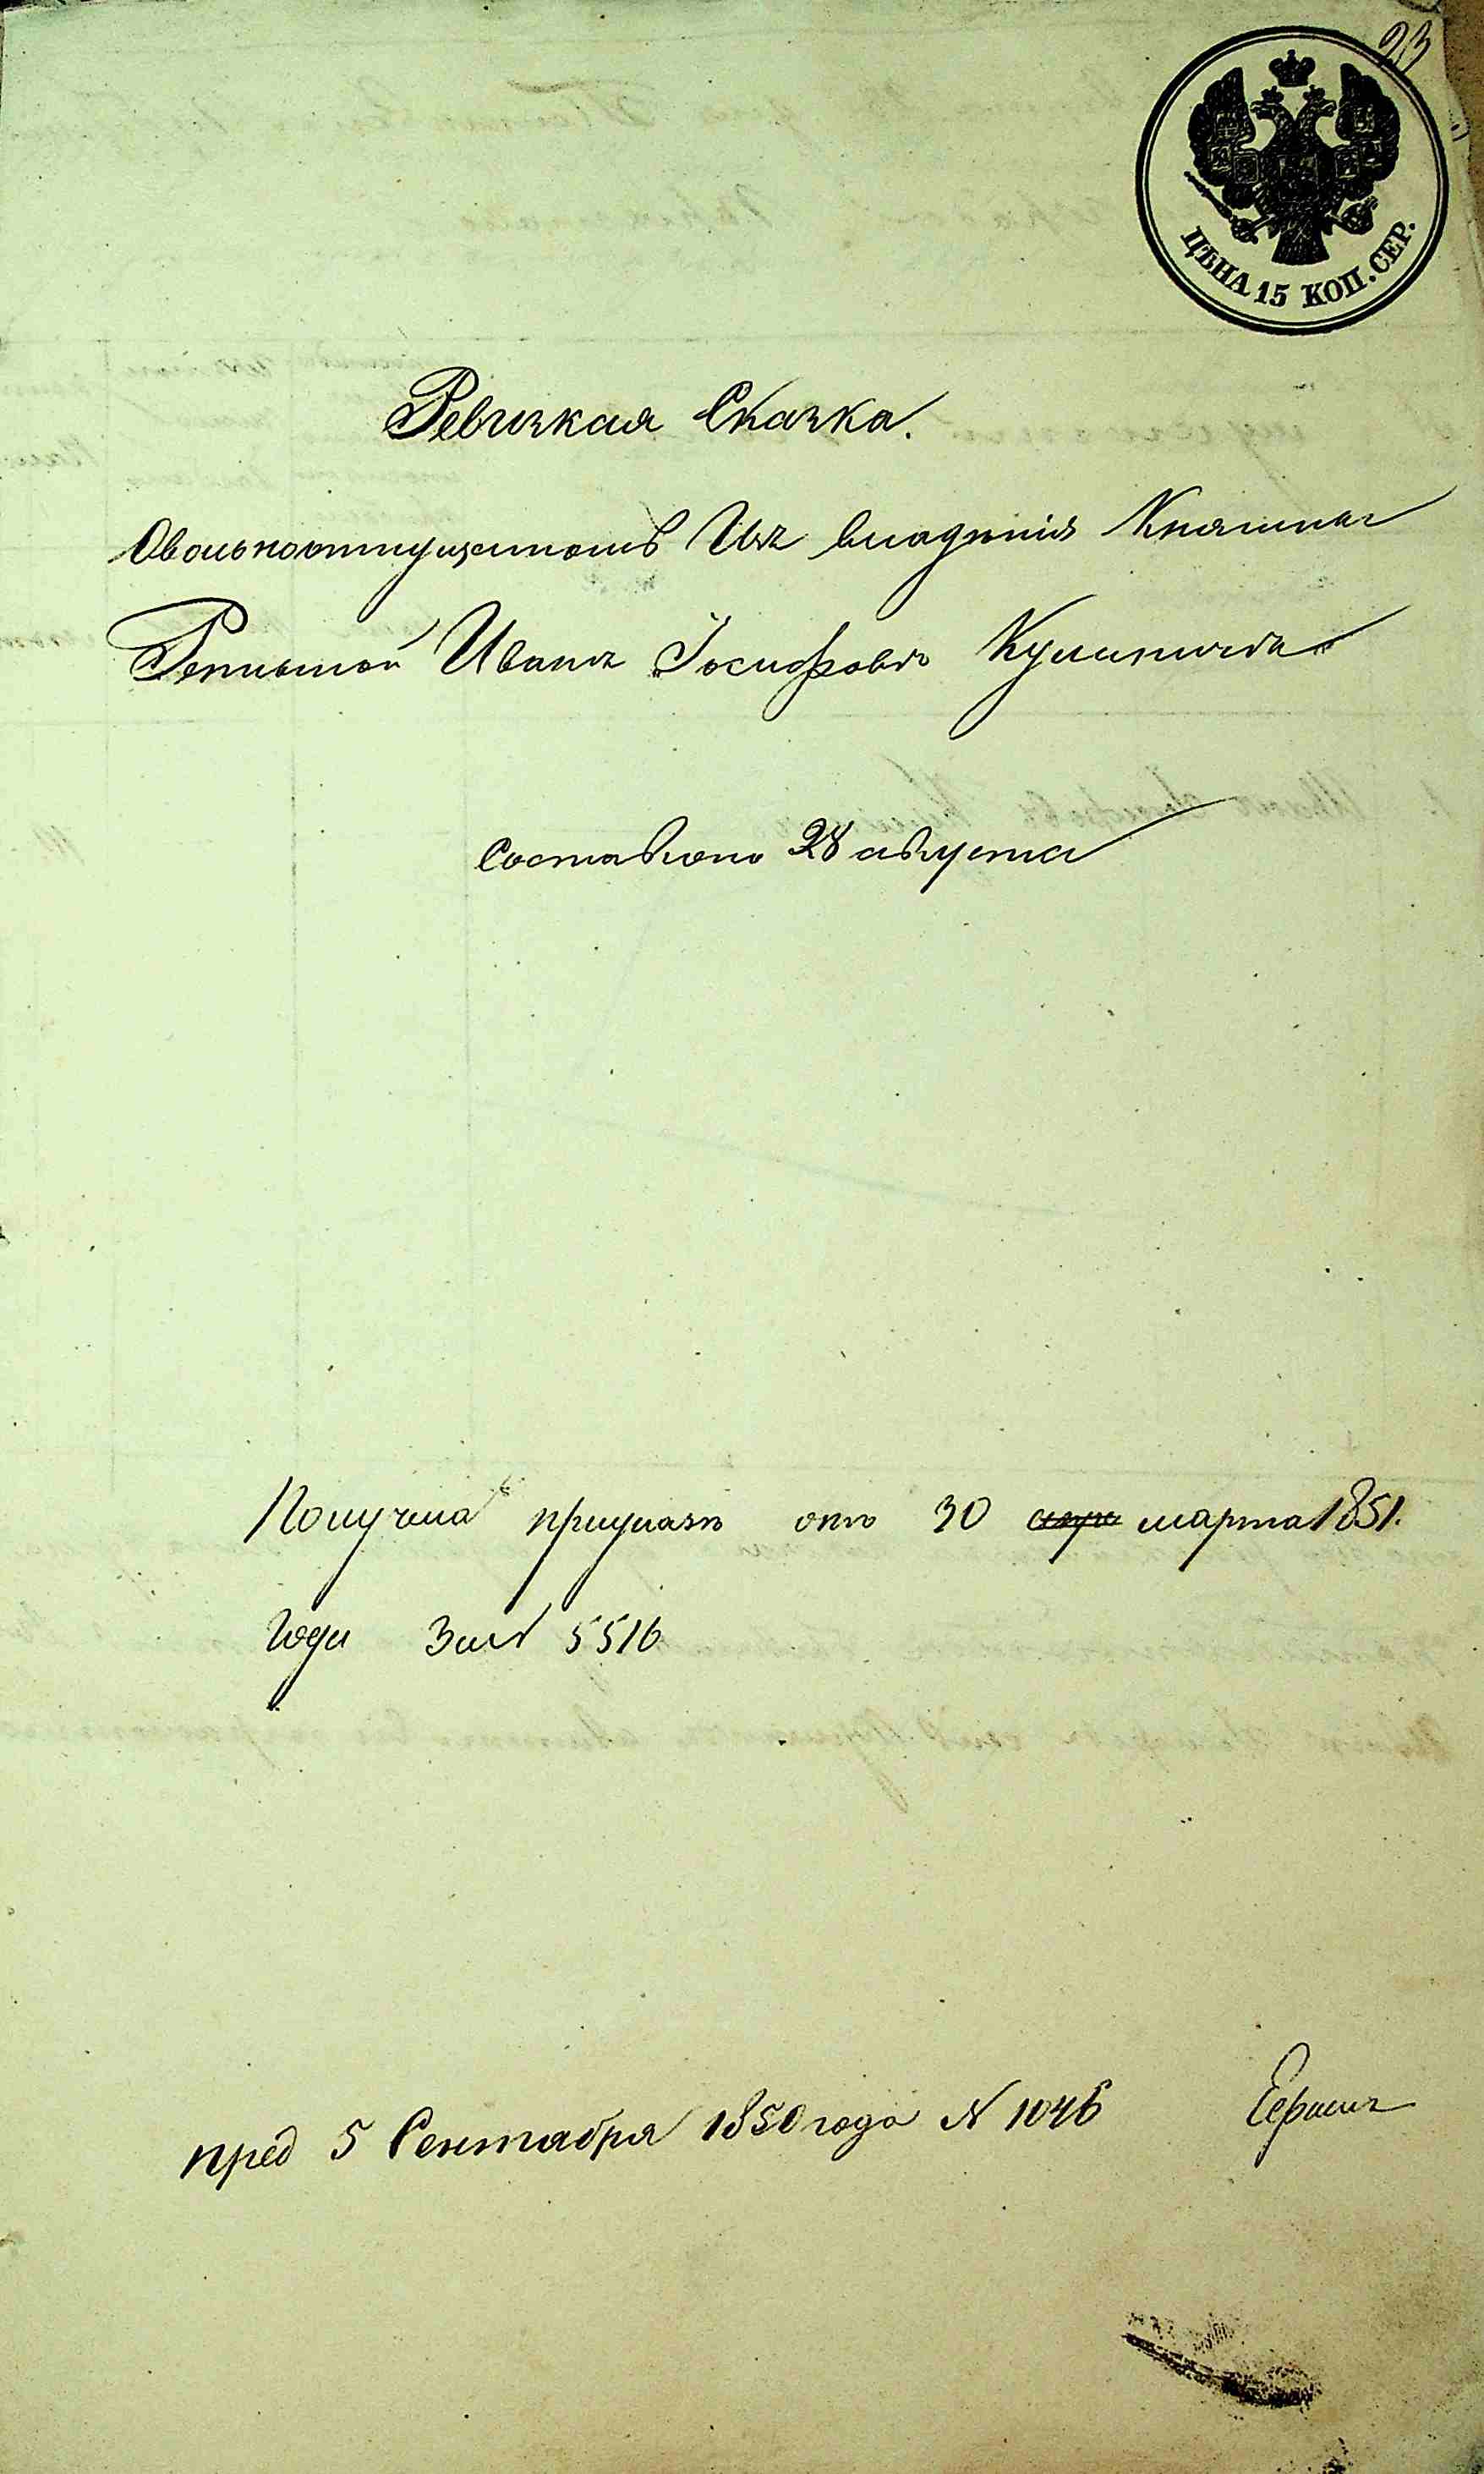 23
ЦѢНА 15 КОП. СЕР.
Ревизкая Сказка.
Овольноотпущенномъ Изъ владѣнія Княгини
Репниной Иванъ Іосифовъ
Составлено 28 августа
Получилъ приказъ отъ 30 марта 1851.
года За № 5516
пред 5 Сентября 1850 года N 1046